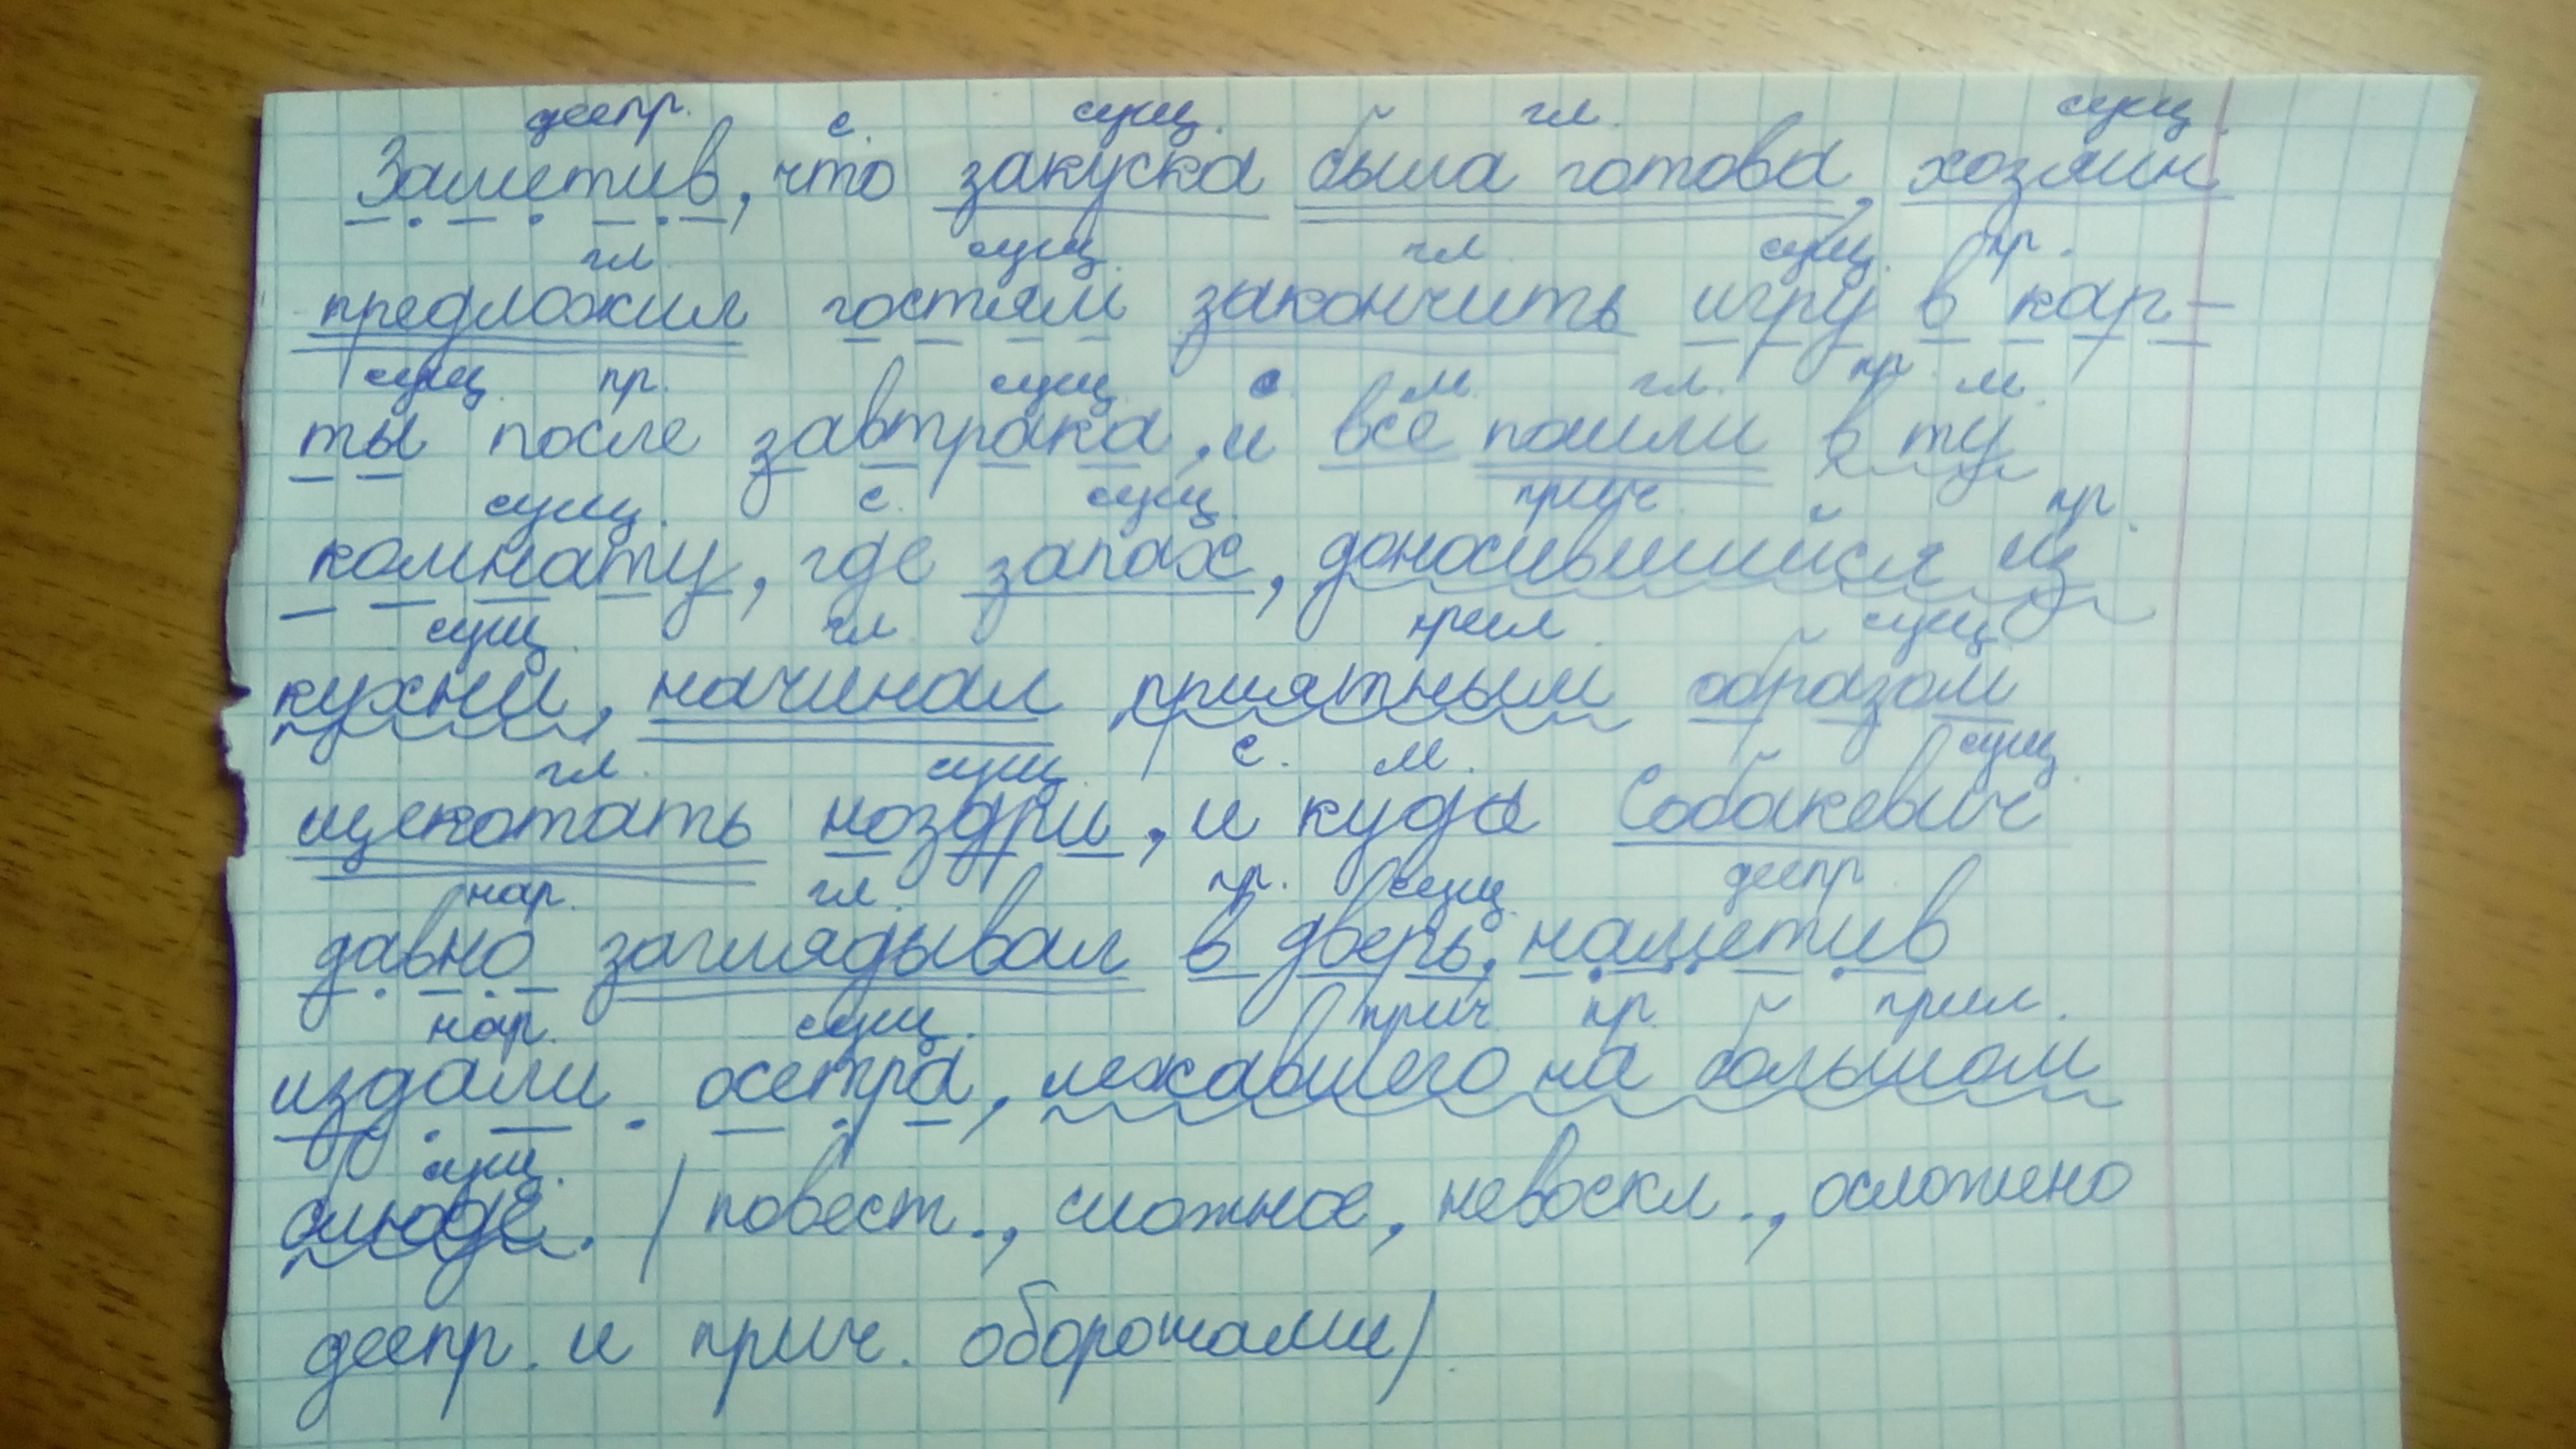 деепр. с. сущ. гл. сущ.
Заметив, что закуска была готова, хозяин
гл. сущ. гл. сущ. пр.
предложил гостям закончить игру в кар-
сущ. пр. сущ. с. м. гл. пр. м.
ты после завтрака, и все пошли в ту
сущ. с. сущ. прич. пр.
комнату, где запах, доносившийся из
сущ. гл. прил. сущ.
кухни, начинал приятным образом
гл. сущ. с. м. сущ.
щекотать ноздри, и куда Собакевич
нар. гл. пр. сущ. деепр.
давно заглядывал в дверь, наметив
нар. сущ. прич. пр. прил.
издали осетра, лежавшего на большом
сущ.
блюде. /повест., сложное, невоскл., осложнено
деепр. и прич. оборотами/.